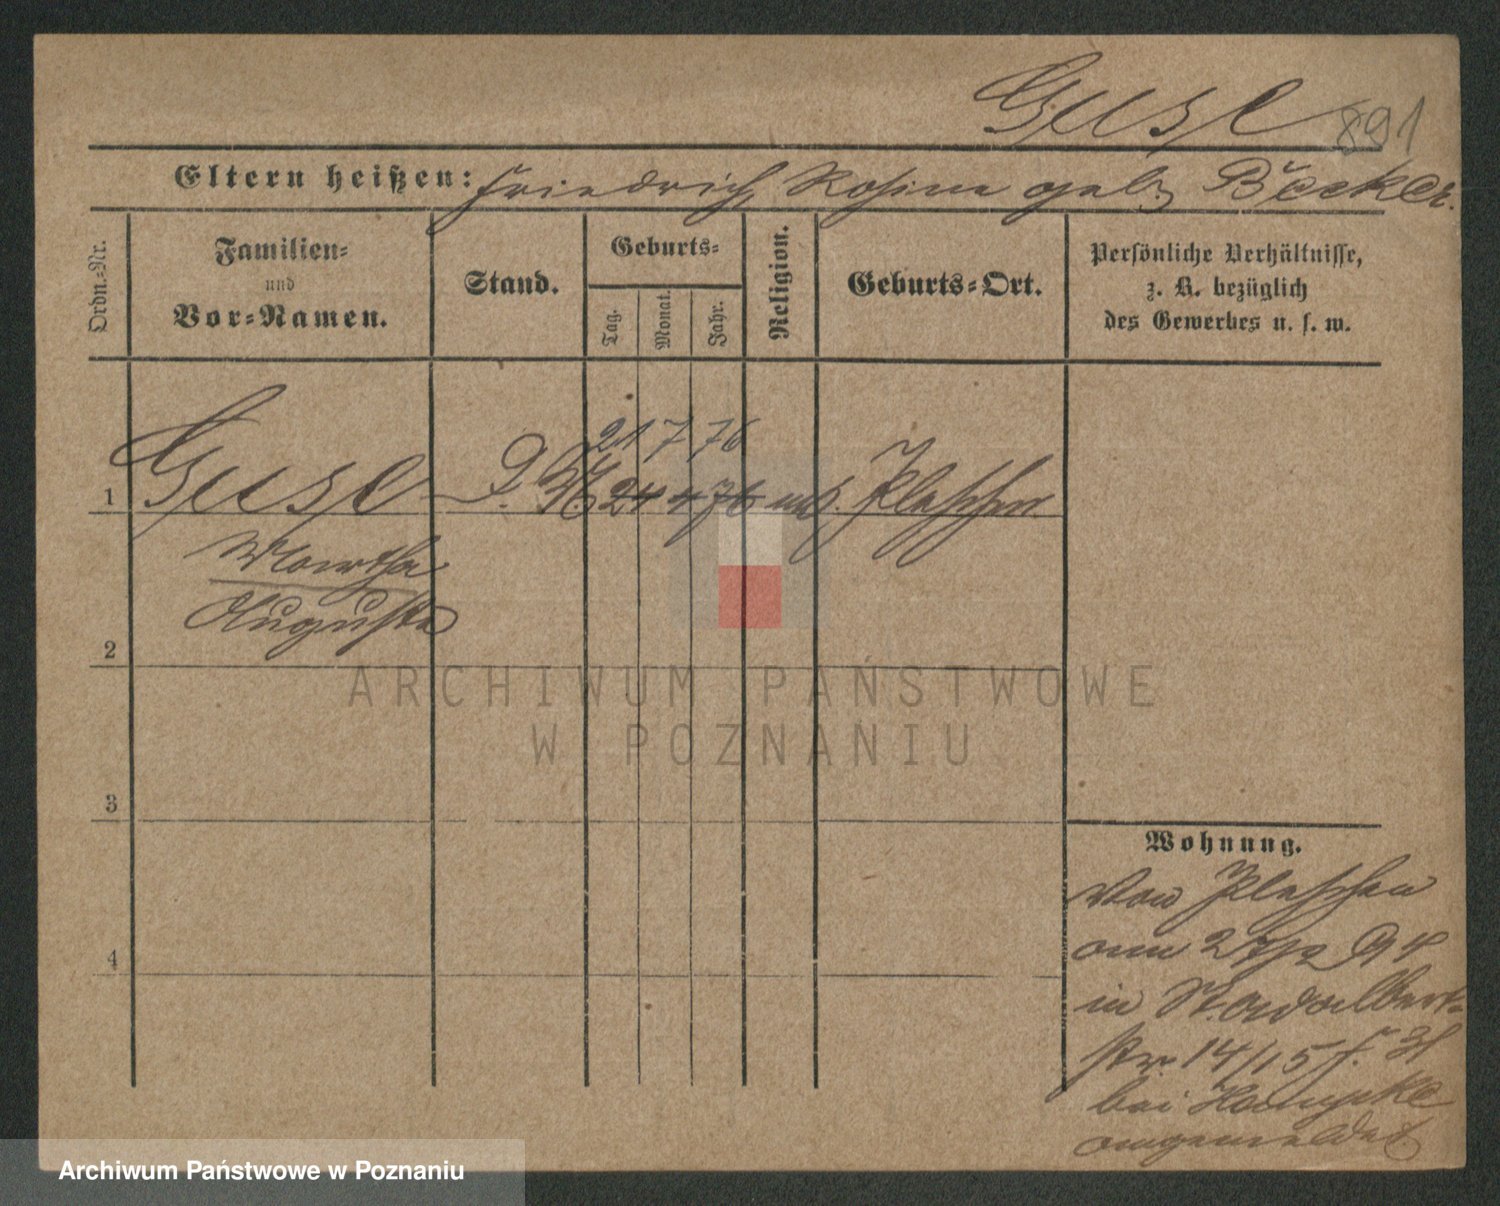 Geisl
891
Eltern heißen: Friedrich, Rosine geb. Becker.
Ordn.-Nr.
Familien-
und
Vor-Namen.
Stand.
Geburts-
Tag.
Monat.
Jahr.
Religion.
Geburts-Ort.
Persönliche Verhältnisse,
z. B. bezüglich
des Gewerbes u. s. w.
21 7 76
1 D. M. 24 4 76 Pleschen
Martha
Auguste
2
3
4
Wohnung.
Von Pleschen
am 27/2 94
in St. Adalbert-
str. 14/15
bei Hampke
angemeldet
ARCHIWUM PAŃSTWOWE
W POZNANIU
Archiwum Państwowe w Poznaniu